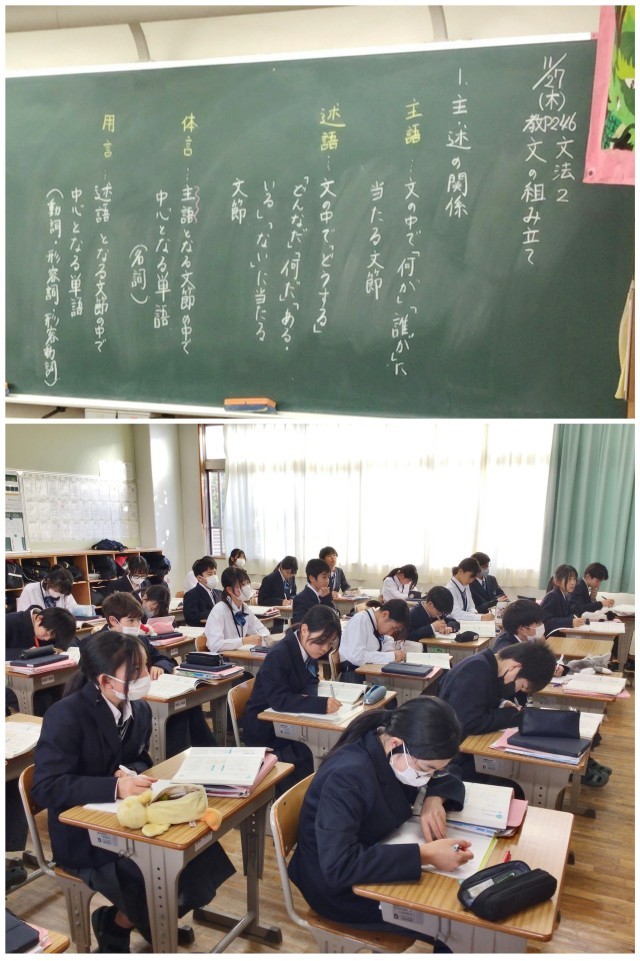 11/27(木)
教P246
文法2
文の組み立て
1. 主・述の関係
主語…文の中で「何が」「誰が」に
当たる文節
述語…文の中で「どうする」
「どんなだ」「何だ」「ある・
いる」「ない」に当たる
文節
体言…主語となる文節の中で
中心となる単語
(名詞)
用言…述語となる文節の中で
中心となる単語
(動詞・形容詞・形容動詞)